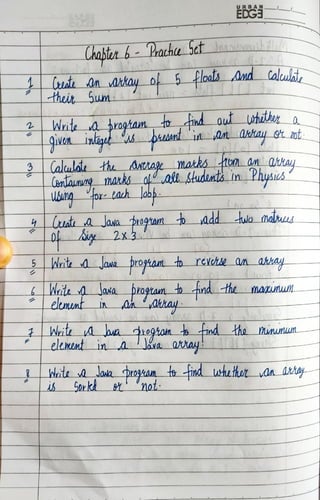 URBAN
EDGE
Chapter 6 - Practice Set
1 Create an array of 5 floats and calculate
their sum.
2 Write a program to find out whether a
given integer is present in an array or not.
3 Calculate the average marks from an array
containing marks of all students in Physics
using for-each loop.
4 Create a Java program to add two matrices
of size 2x3.
5 Write a Java program to reverse an array
6 Write a Java program to find the maximum
element in an array.
7 Write a Java program to find the minimum
element in a Java array!
8 Write a Java program to find whether an array
is sorted or not.